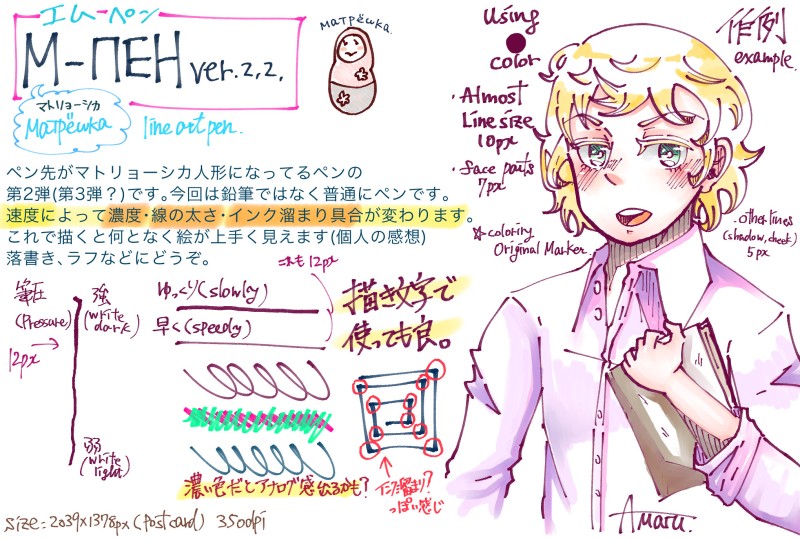 エムーペン
М-ПЕН ver.2,2.
матрёшка
マトリョーシカ
матрёшка
line art pen.
ペン先がマトリョーシカ人形になってるペンの
第2弾(第3弾？)です。今回は鉛筆ではなく普通にペンです。
速度によって濃度・線の太さ・インク溜まり具合が変わります。
これで描くと何となく絵が上手く見えます(個人の感想)
落書き、ラフなどにどうぞ。
これも12px
筆圧
(Pressure)
強
(write dark)
12px
弱
(write light)
ゆっくり(slowly)
早く(speedy)
描き文字で
使っても良。
濃い色だとアナログ感出るかも？
インク溜まり？
っぽい感じ
size=2039×1378px(postcard) 350dpi
Using
color
・Almost
Line size
10px
・face parts
7px
☆coloring
Original Marker
作例
example.
・other lines
(shadow, cheek)
5px
Amaru.